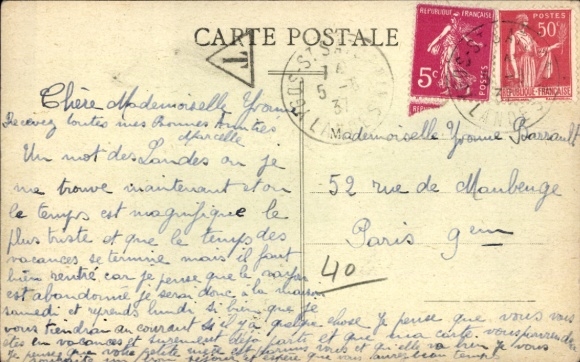 CARTE POSTALE
T
RÉPUBLIQUE FRANÇAISE
5c
POSTES
POSTES
50c
REPUBLIQUE-FRANÇAISE
37
LANDES
Chère Mademoiselle Yvonne
Recevez toutes mes Bonnes Amitiés
Marcelle
Un mot des Landes ou je
me trouve maintenant et ou
le temps est magnifique le
plus triste et que le temps des
vacances se termine mais il faut
bien rentré car je pense que le
est abandonné je serai donc à la maison
samedi et reprends lundi si bien que je
vous tiendrai au courant si il y a quelque chose je pense que vous vous
êtes en vacances et surement déjà partie et que ma carte vous
je pense que votre petite est vous et qu'elle va bien je vous
que vous
Mademoiselle Yvonne Barrault
52 rue de Maubeuge
Paris 9em
40